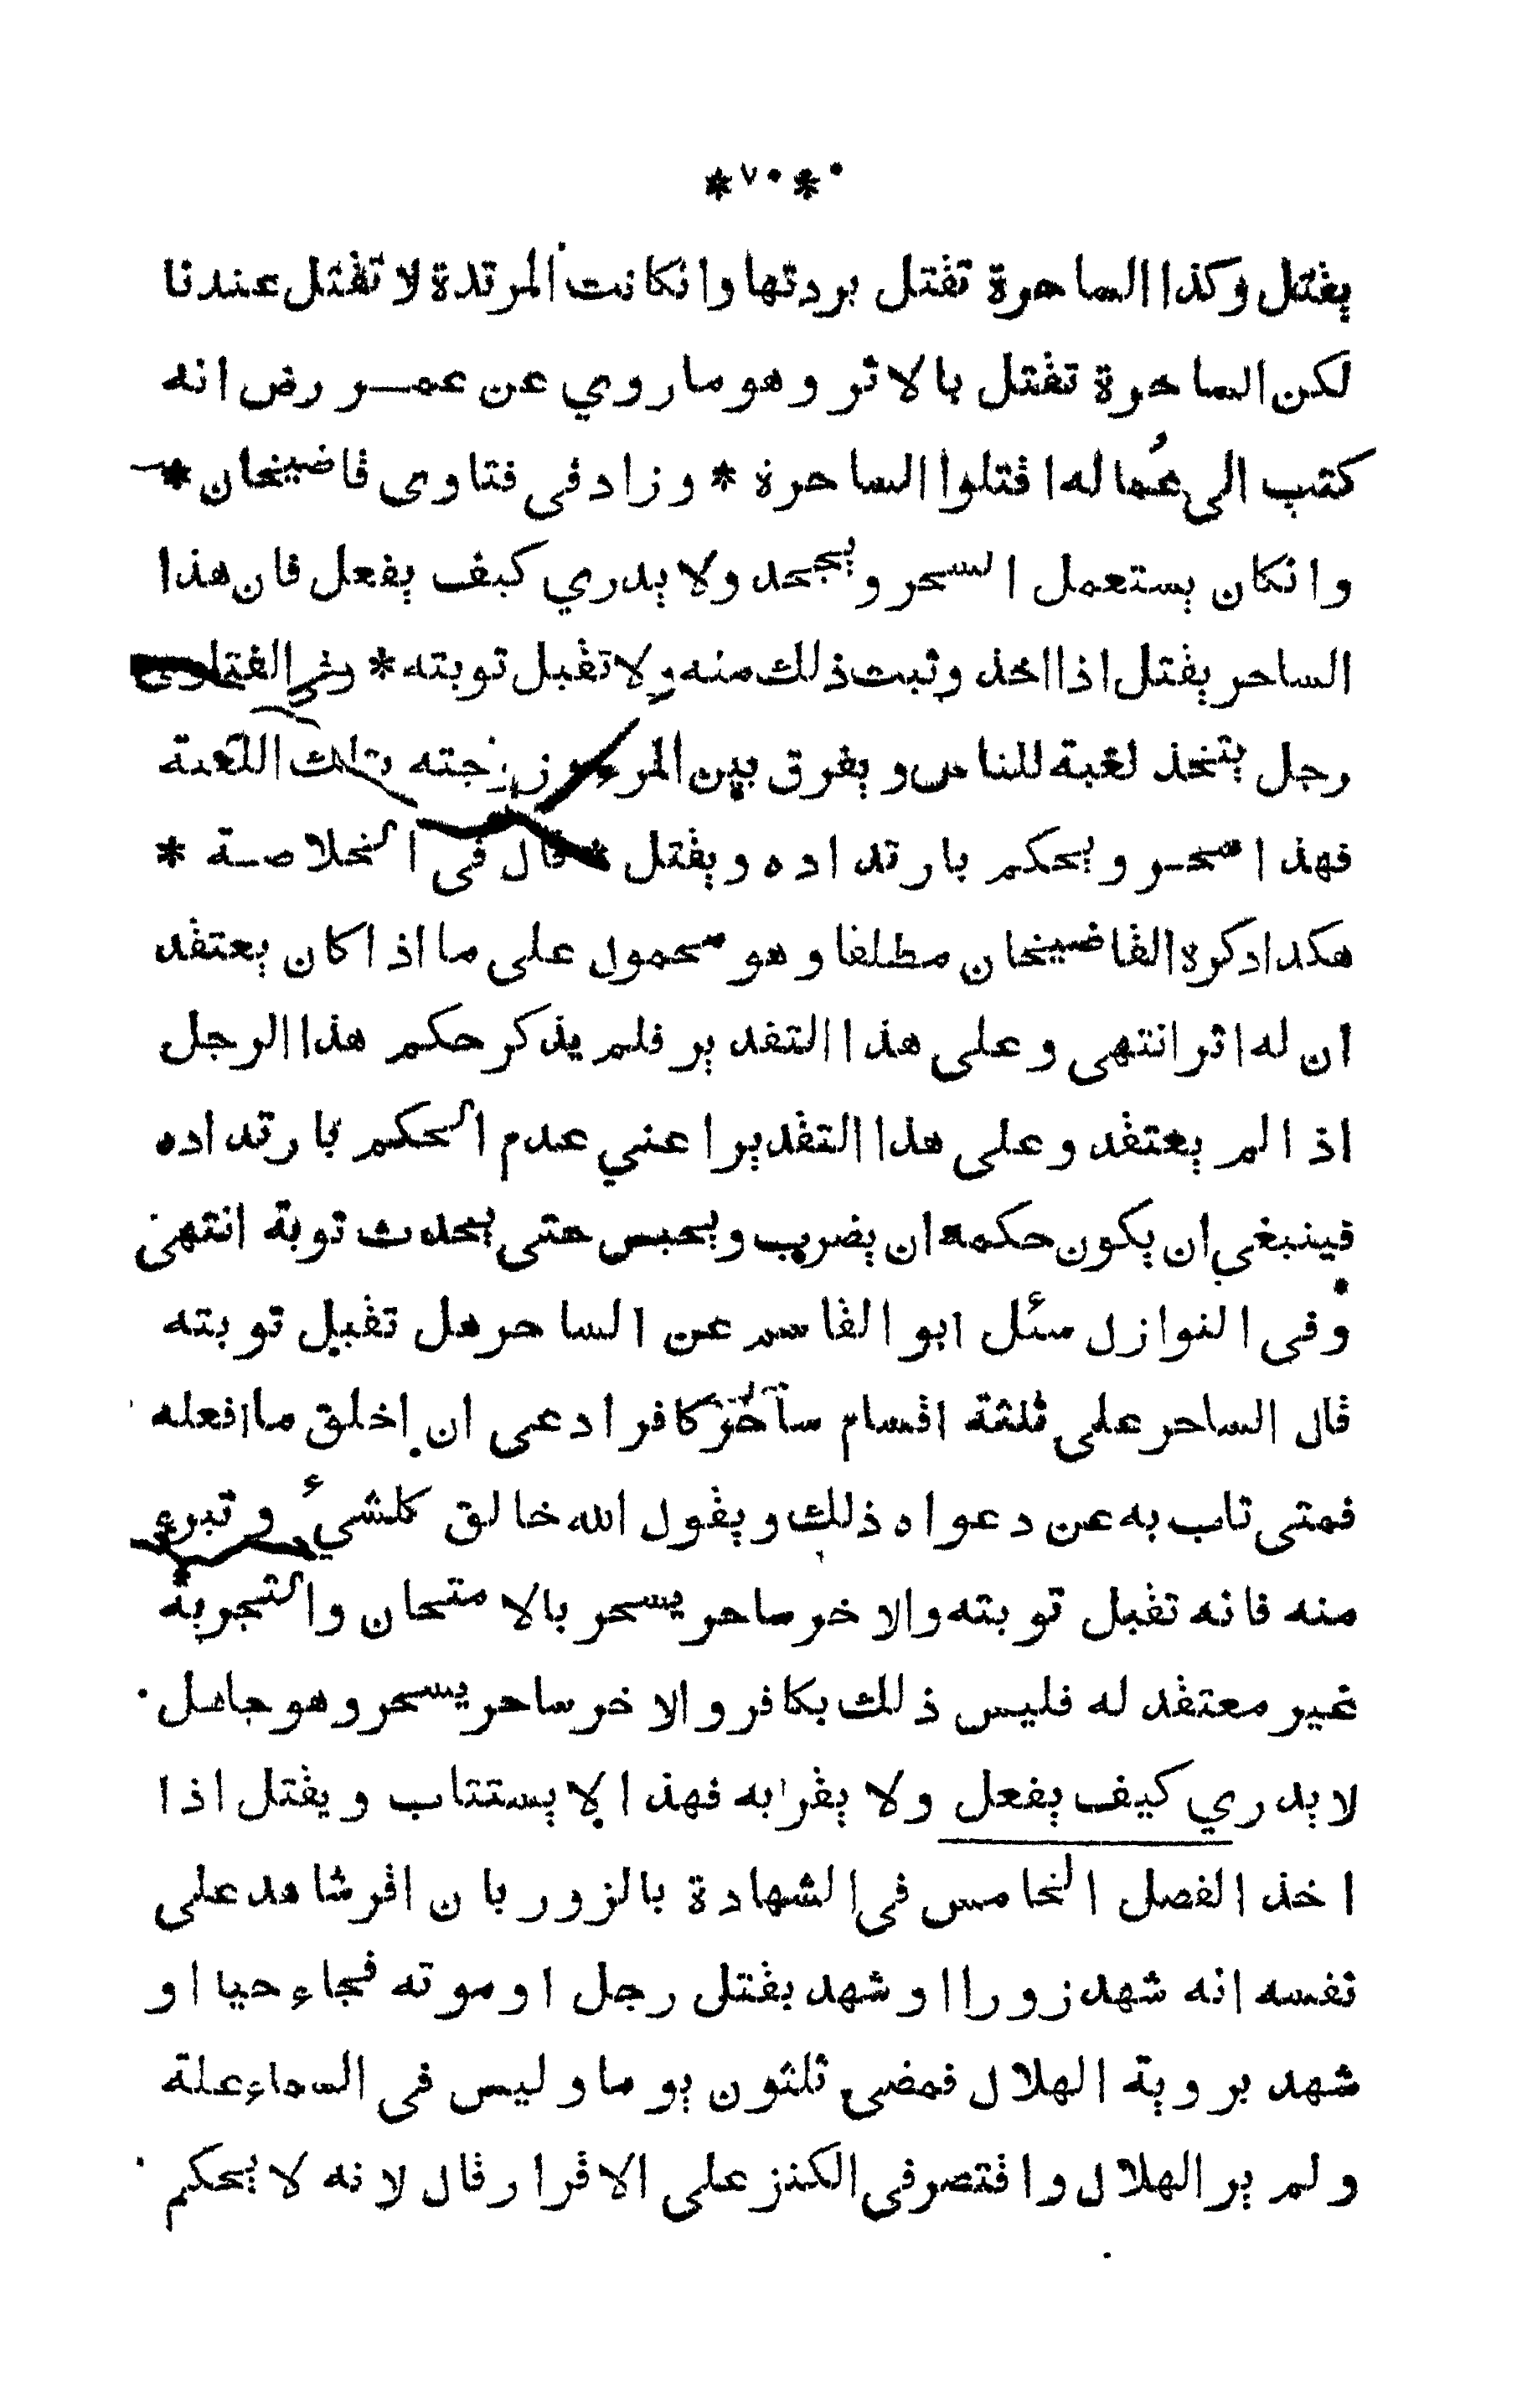 *٧٠*
يقتل وكذا الساحرة تقتل بردتها وانكانت المرتدة لا تقتل عندنا
لكن الساحرة تقتل بالاثر وهو ماروي عن عمر رض انه
كتب الى عماله اقتلوا الساحرة * وزاد في فتاوى قاضيخان *
وانكان يستعمل السحر ويجحد ولا يدري كيف يفعل فان هذا
الساحر يقتل اذا اخذ وثبت ذلك منه ولا تقبل توبته * وفي الفتاوى
رجل يتخذ لعبة للناس ويفرق بين المرء وزوجته بتلك اللعبة
فهذا سحر ويحكم بارتداده ويقتل * قال في الخلاصة *
هكذا ذكره القاضيخان مطلقا وهو محمول على ما اذا كان يعتقد
ان له اثر انتهى وعلى هذا التقدير فلم يذكر حكم هذا الرجل
اذا لم يعتقد وعلى هذا التقدير اعني عدم الحكم بارتداده
فينبغي ان يكون حكمه ان يضرب ويحبس حتى يحدث توبة انتهى
وفي النوازل سئل ابو القاسم عن الساحر هل تقبل توبته
قال الساحر على ثلثة اقسام ساحر كافر ادعى ان اخلق ما افعله
فمتى تاب به عن دعواه ذلك ويقول الله خالق كلشيء وتبرء
منه فانه تقبل توبته والاخر ساحر يسحر بالامتحان والتجربة
غير معتقد له فليس ذلك بكافر والاخر ساحر يسحر وهو جاهل
لا يدري كيف يفعل ولا يقرا به فهذا لا يستتاب ويقتل اذا
اخذ الفصل الخامس في الشهادة بالزور بان اقر شاهد على
نفسه انه شهد زورا او شهد بقتل رجل او موته فجاء حيا او
شهد بروية الهلال فمضى ثلثون يوما وليس في السماء علة
ولم ير الهلال واقتصر في الكنز على الاقرار قال لانه لا يحكم